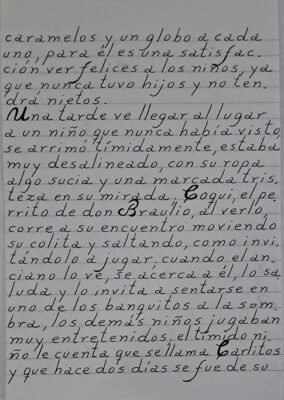 caramelos y un globo a cada
uno, para él es una satisfac.
ción ver felices a los niños, ya
que nunca tuvo hijos y no ten.
drá nietos.
Una tarde ve llegar al lugar
a un niño que nunca había visto,
se arrimó tímidamente, estaba
muy desalineado, con su ropa
algo sucia y una marcada tris_
téza en su mirada, Coqui, el pe_
rrito de don Braulio, al verlo,
corre a su encuentro moviendo
su colita y saltando, como invi_
tándolo a jugar. cuando el an_
ciano lo ve, se acerca a él, lo sa_
luda y lo invita a sentarse en
uno de los banquitos a la som_
bra, los demás niños jugaban
muy entretenidos, el tímido ni_
ño le cuenta que se llama Carlitos
y que hace dos días se fue de su